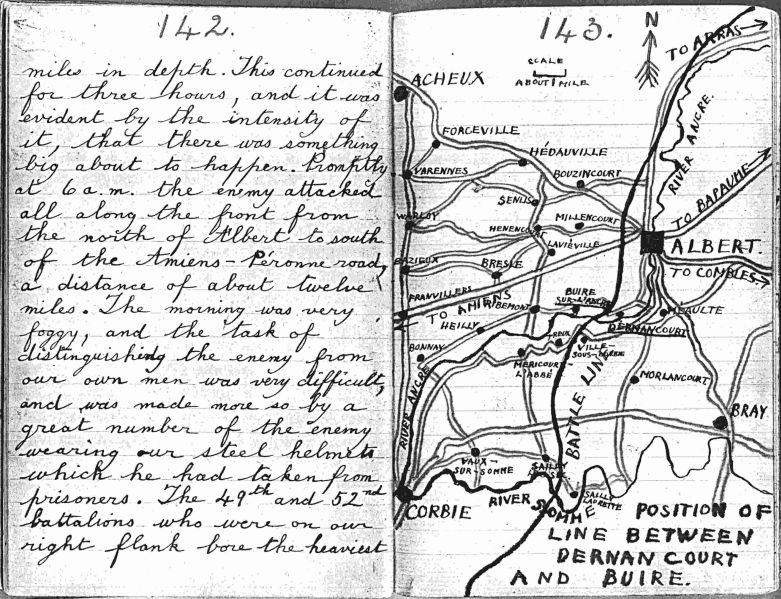 142.
miles in depth. This continued
for three hours, and it was
evident by the intensity of
it, that there was something
big about to happen. Promptly
at 6 a.m. the enemy attacked
all along the front from
the north of Albert to south
of the Amiens-Péronne road,
a distance of about twelve
miles. The morning was very
foggy, and the task of
distinguishing the enemy from
our own men was very difficult,
and was made more so by a
great number of the enemy
wearing our steel helmets
which he had taken from
prisoners. The 49th and 52nd
battalions who were on our
right flank bore the heaviest
143.
N
TO ARRAS
SCALE
ABOUT 1 MILE
ACHEUX
RIVER ANCRE.
FORCEVILLE
HÉDAUVILLE
VARENNES
BOUZINCOURT
TO BAPAUME
SENLIS
WARLOY
MILLENCOURT
HENENCOURT
ALBERT.
LAVIÉVILLE
BAZIEUX
BRESLE
TO COMBLES.
FRANVILLERS
TO AMIENS
RIBEMONT
BUIRE
SUR-L'ANCRE
MÉAULTE
HEILLY
DERNANCOURT
TREUX
VILLE-
SOUS-CORBIE
BONNAY
MERICOURT
L'ABBÉ
MORLANCOURT
BATTLE LINE
RIVER ANCRE
BRAY
VAUX-
SUR-SOMME
SAILLY
LE SEC
SAILLY
LAURETTE
CORBIE
RIVER SOMME
POSITION OF
LINE BETWEEN
DERNANCOURT
AND BUIRE.